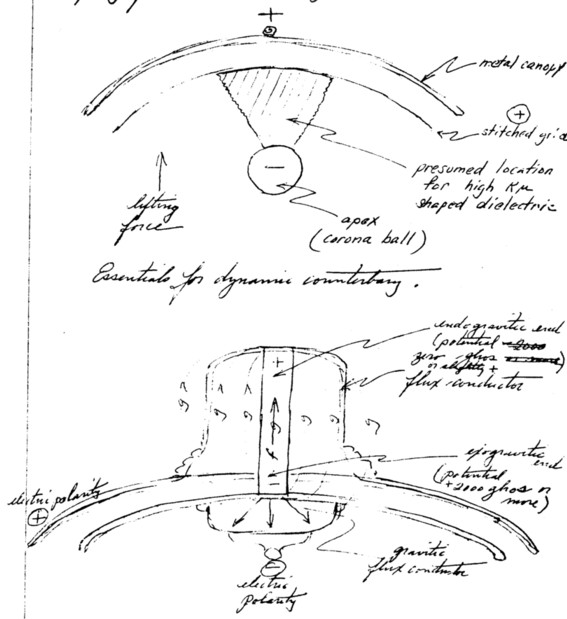 +
metal canopy
+
stitched grid
presumed location
for high Kμ
shaped dielectric
−
lifting
force
apex
(corona ball)
Essentials for dynamic counterbary.
endogravitic end
(potential
zero ghos
or slightly +
flux conductor
+
g g g g g g
exogravitic
end
(potential
+2000 ghos or
more)
−
electric polarity
+
gravitic
flux conductor
−
electric
polarity